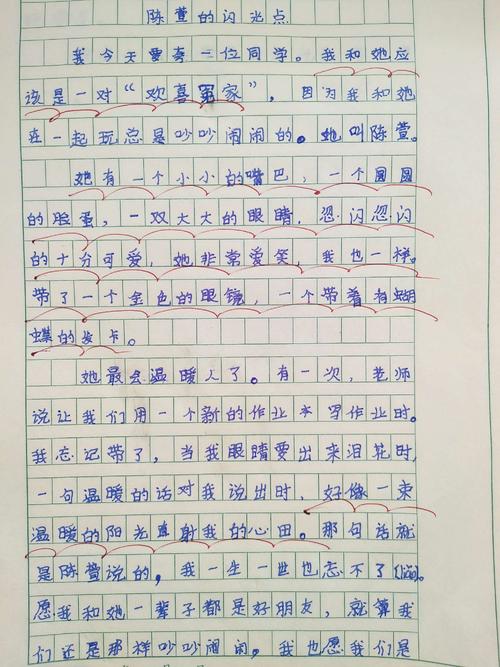 陈萱的闪光点
我今天要夸一位同学。我和她应
该是一对“欢喜冤家”，因为我和她
在一起玩总是吵吵闹闹的。她叫陈萱。
她有一个小小的嘴巴，一个圆圆
的脸蛋，一双大大的眼睛，忽闪忽闪
的十分可爱，她非常爱笑，我也一样。
带了一个金色的眼镜，一个带着有蝴
蝶的发卡。
她最会温暖人了。有一次，老师
说让我们用一个新的作业本写作业时。
我忘记带了，当我眼睛要出来泪花时，
一句温暖的话对我说出时，好像一束
温暖的阳光直射我的心田。那句话就
是陈萱说的，我一生一世也忘不了
愿我和她一辈子都是好朋友，就算我
们还是那样吵吵闹闹。我也愿我们是